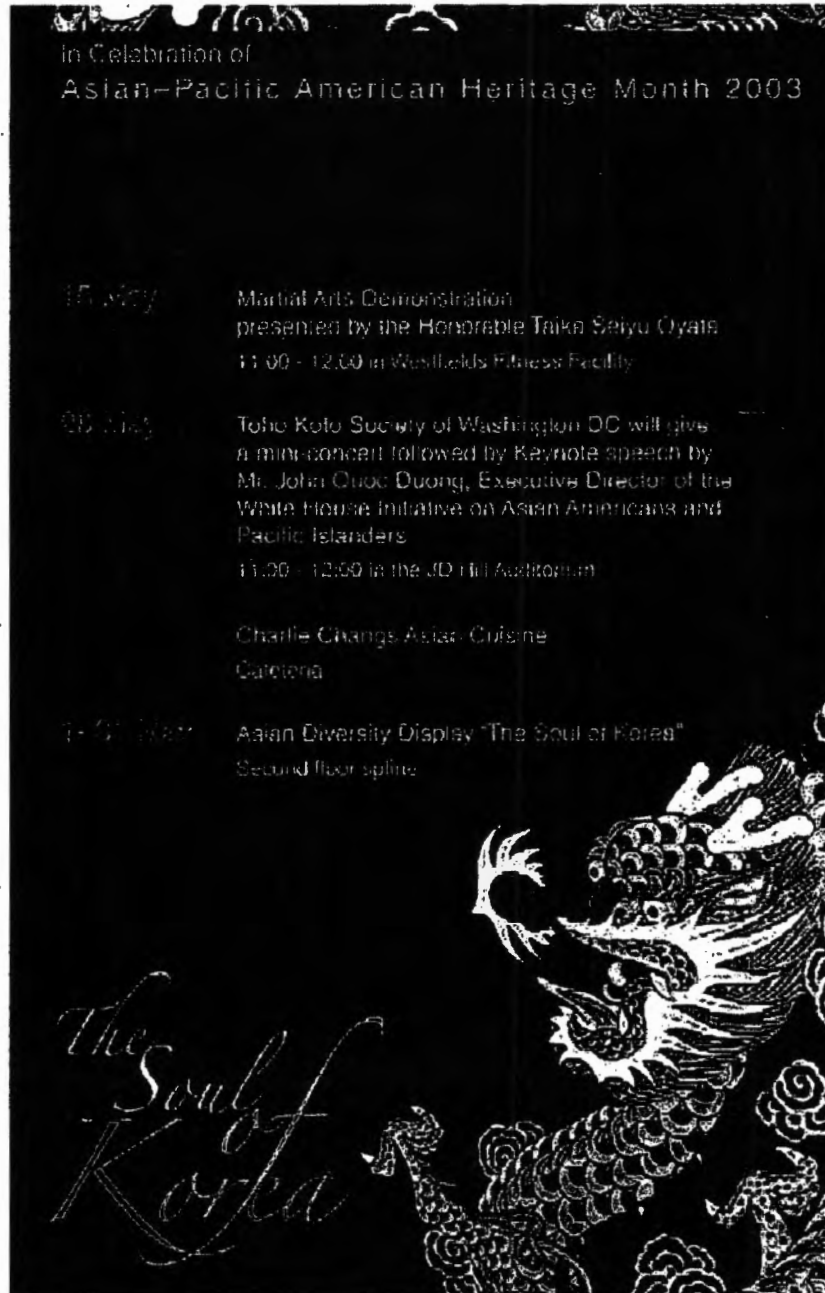 In Celebration of
Asian-Pacific American Heritage Month 2003
May
Martial Arts Demonstration
presented by the Honorable Taika Seiyu Oyata
11:00 - 12:00 in Westfields Fitness Facility
May
Toho Koto Society of Washington DC will give
a mini-concert followed by Keynote speech by
Mr. John Quoc Duong, Executive Director of the
White House Initiative on Asian Americans and
Pacific Islanders
11:00 - 12:00 in the JD Hill Auditorium
Charlie Changs Asian Cuisine
Cafeteria
Asian Diversity Display "The Soul of Korea"
Second floor spline
The
Soul
of
Korea